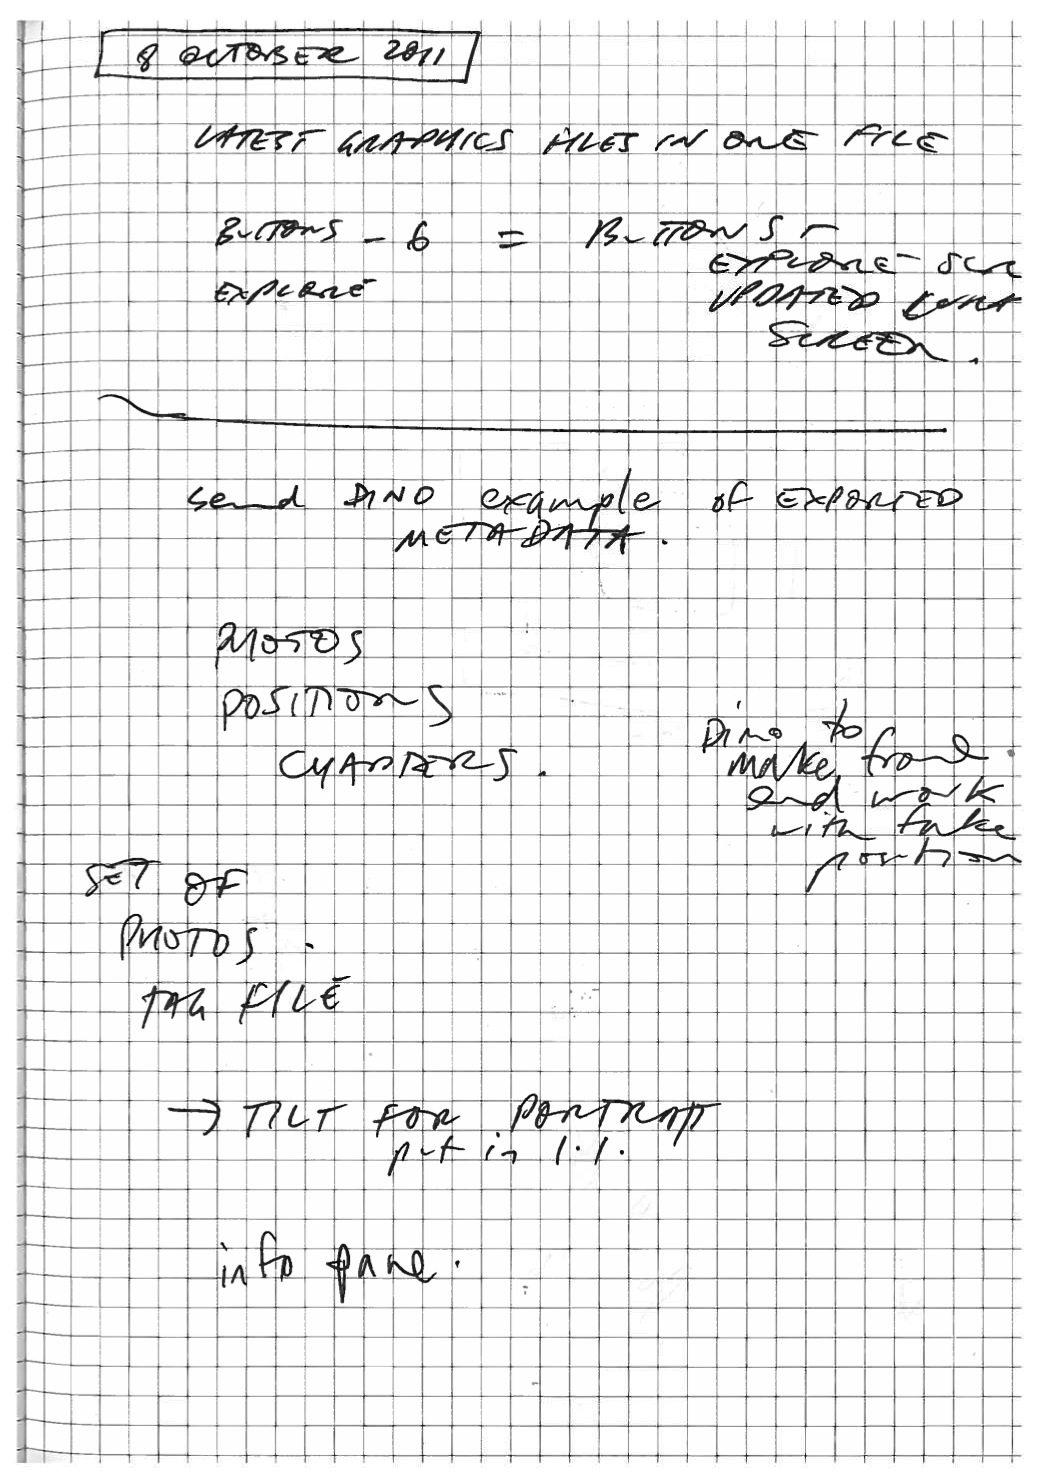 8 OCTOBER 2011
LATEST GRAPHICS FILES IN ONE FILE
BUTTONS - 6 = BUTTONS -
EXPLORE - SCR
EXPLORE
UPDATED
SCREEN.
send DINO example of EXPORTED
METADATA.
PHOTOS
POSITIONS
CHAPTERS.
Dino to
make front
end work
with fake
position
SET OF
PHOTOS.
TAG FILE
→ TILT FOR PORTRAIT
put in 1.1.
info pane.